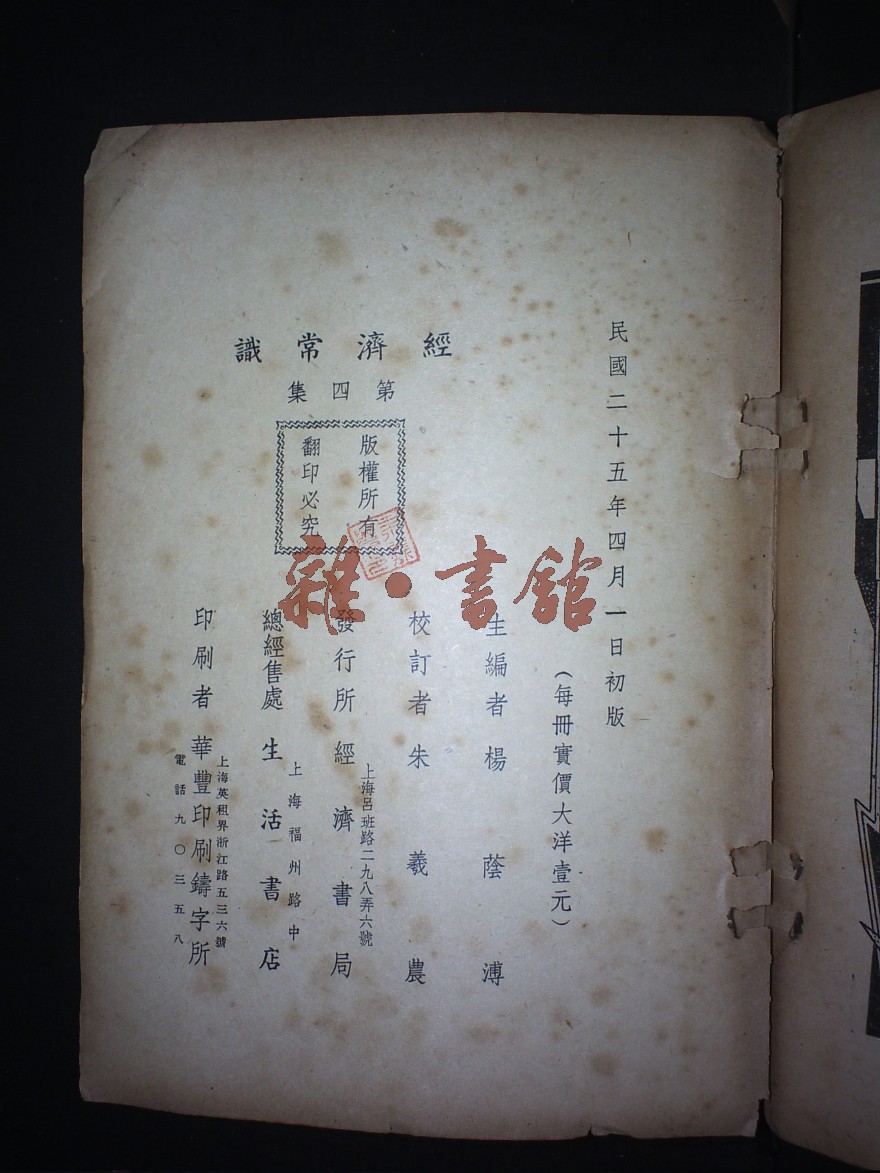 民國二十五年四月一日初版
(每冊實價大洋壹元)
經濟常識
第四集
版權所有
翻印必究
主編者 楊蔭溥
校訂者 朱羲農
發行所 經濟書局
上海呂班路二九八弄六號
總經售處 生活書店
上海福州路中
印刷者 華豐印刷鑄字所
上海英租界浙江路五三六號
電話九〇三五八
雜·書館